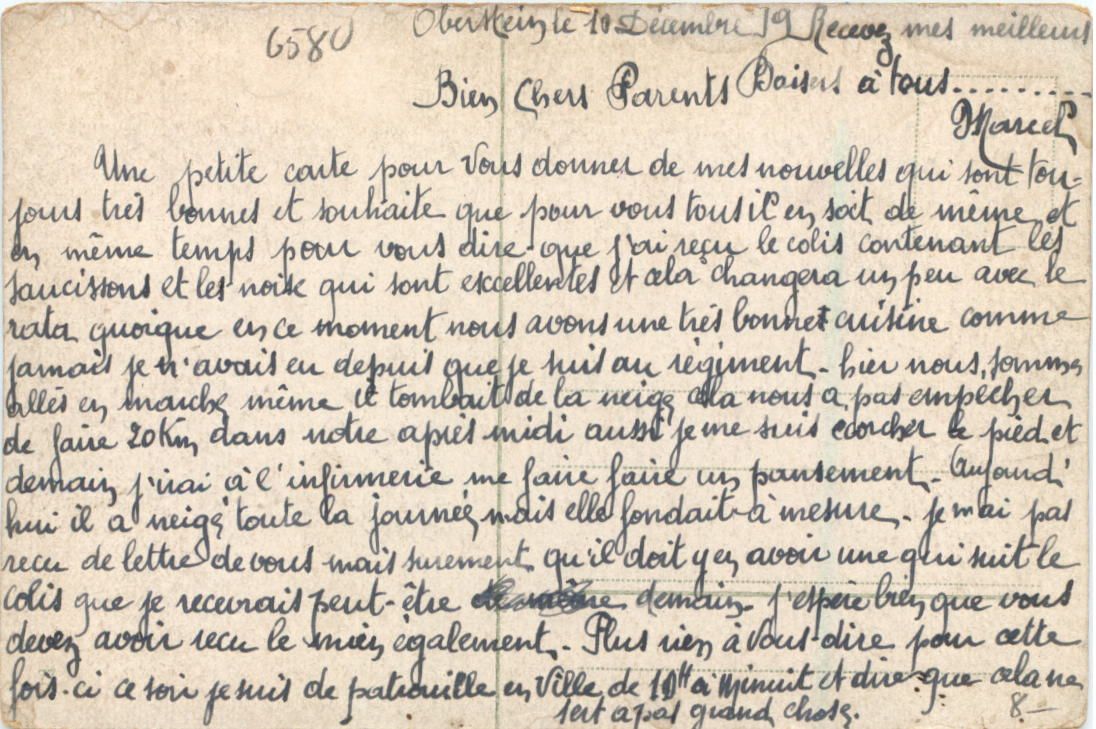 6580
Oberstein le 10 Décembre 19
Bien Chers Parents
Une petite carte pour vous donner de mes nouvelles qui sont tou-
jours très bonnes et souhaite que pour vous tous il en soit de même et
en même temps pour vous dire que j'ai reçu le colis contenant les
saucissons et les noix qui sont excellentes et cela changera un peu avec le
rata quoique en ce moment nous avons une très bonne cuisine comme
jamais je n'avais eu depuis que je suis au régiment. hier nous sommes
allés en marche même il tombait de la neige cela nous a pas empêcher
de faire 20 Km dans notre après midi aussi je me suis écorcher le pied et
demain j'irai à l'infirmerie me faire faire un pansement. Aujourd'
hui il a neigé toute la journée mais elle fondait à mesure. je m'ai pas
recu de lettre de vous mais surement qu'il doit y en avoir une qui suit le
colis que je recevrais peut-être demain. j'espère bien que vous
devez avoir recu le mien également. Plus rien à vous dire pour cette
fois-ci ce soir je suis de patrouille en Ville de 10H à Minuit et dire que cela ne
sert a pas grand chose.
Recevez mes meilleurs
Baisers à tous.........
Marcel
8-